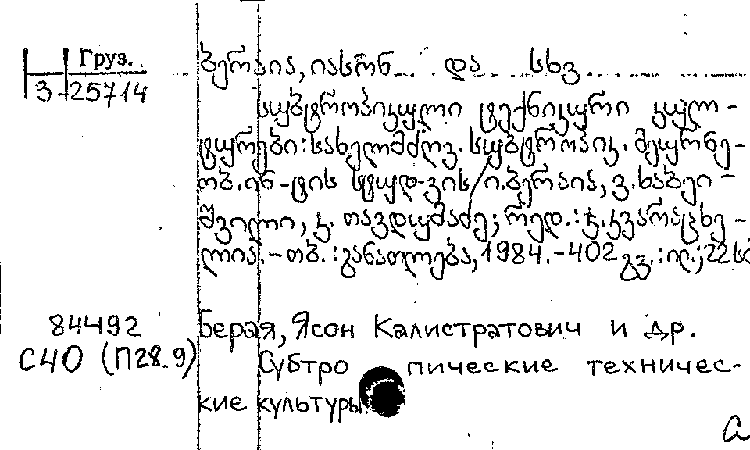 Груз.
3-25714
ბერაია, იასონ და სხვ.
სუბტროპიკული ტექნიკური კულ-
ტურები: სახელმძღვ. სუბტროპიკ. მეურნე-
ობ. ინ-ტის სტუდ-ვის / ი. ბერაია, ვ. ხაბეი-
შვილი, კ. თავდუმაძე; რედ.: კ. კვარაცხე-
ლია. - თბ.: განათლება, 1984. - 402 გვ.: ილ.; 22 სმ
84492
С40 (П28.9)
Берая, Ясон Калистратович и др.
Субтропические техничес-
кие культуры.